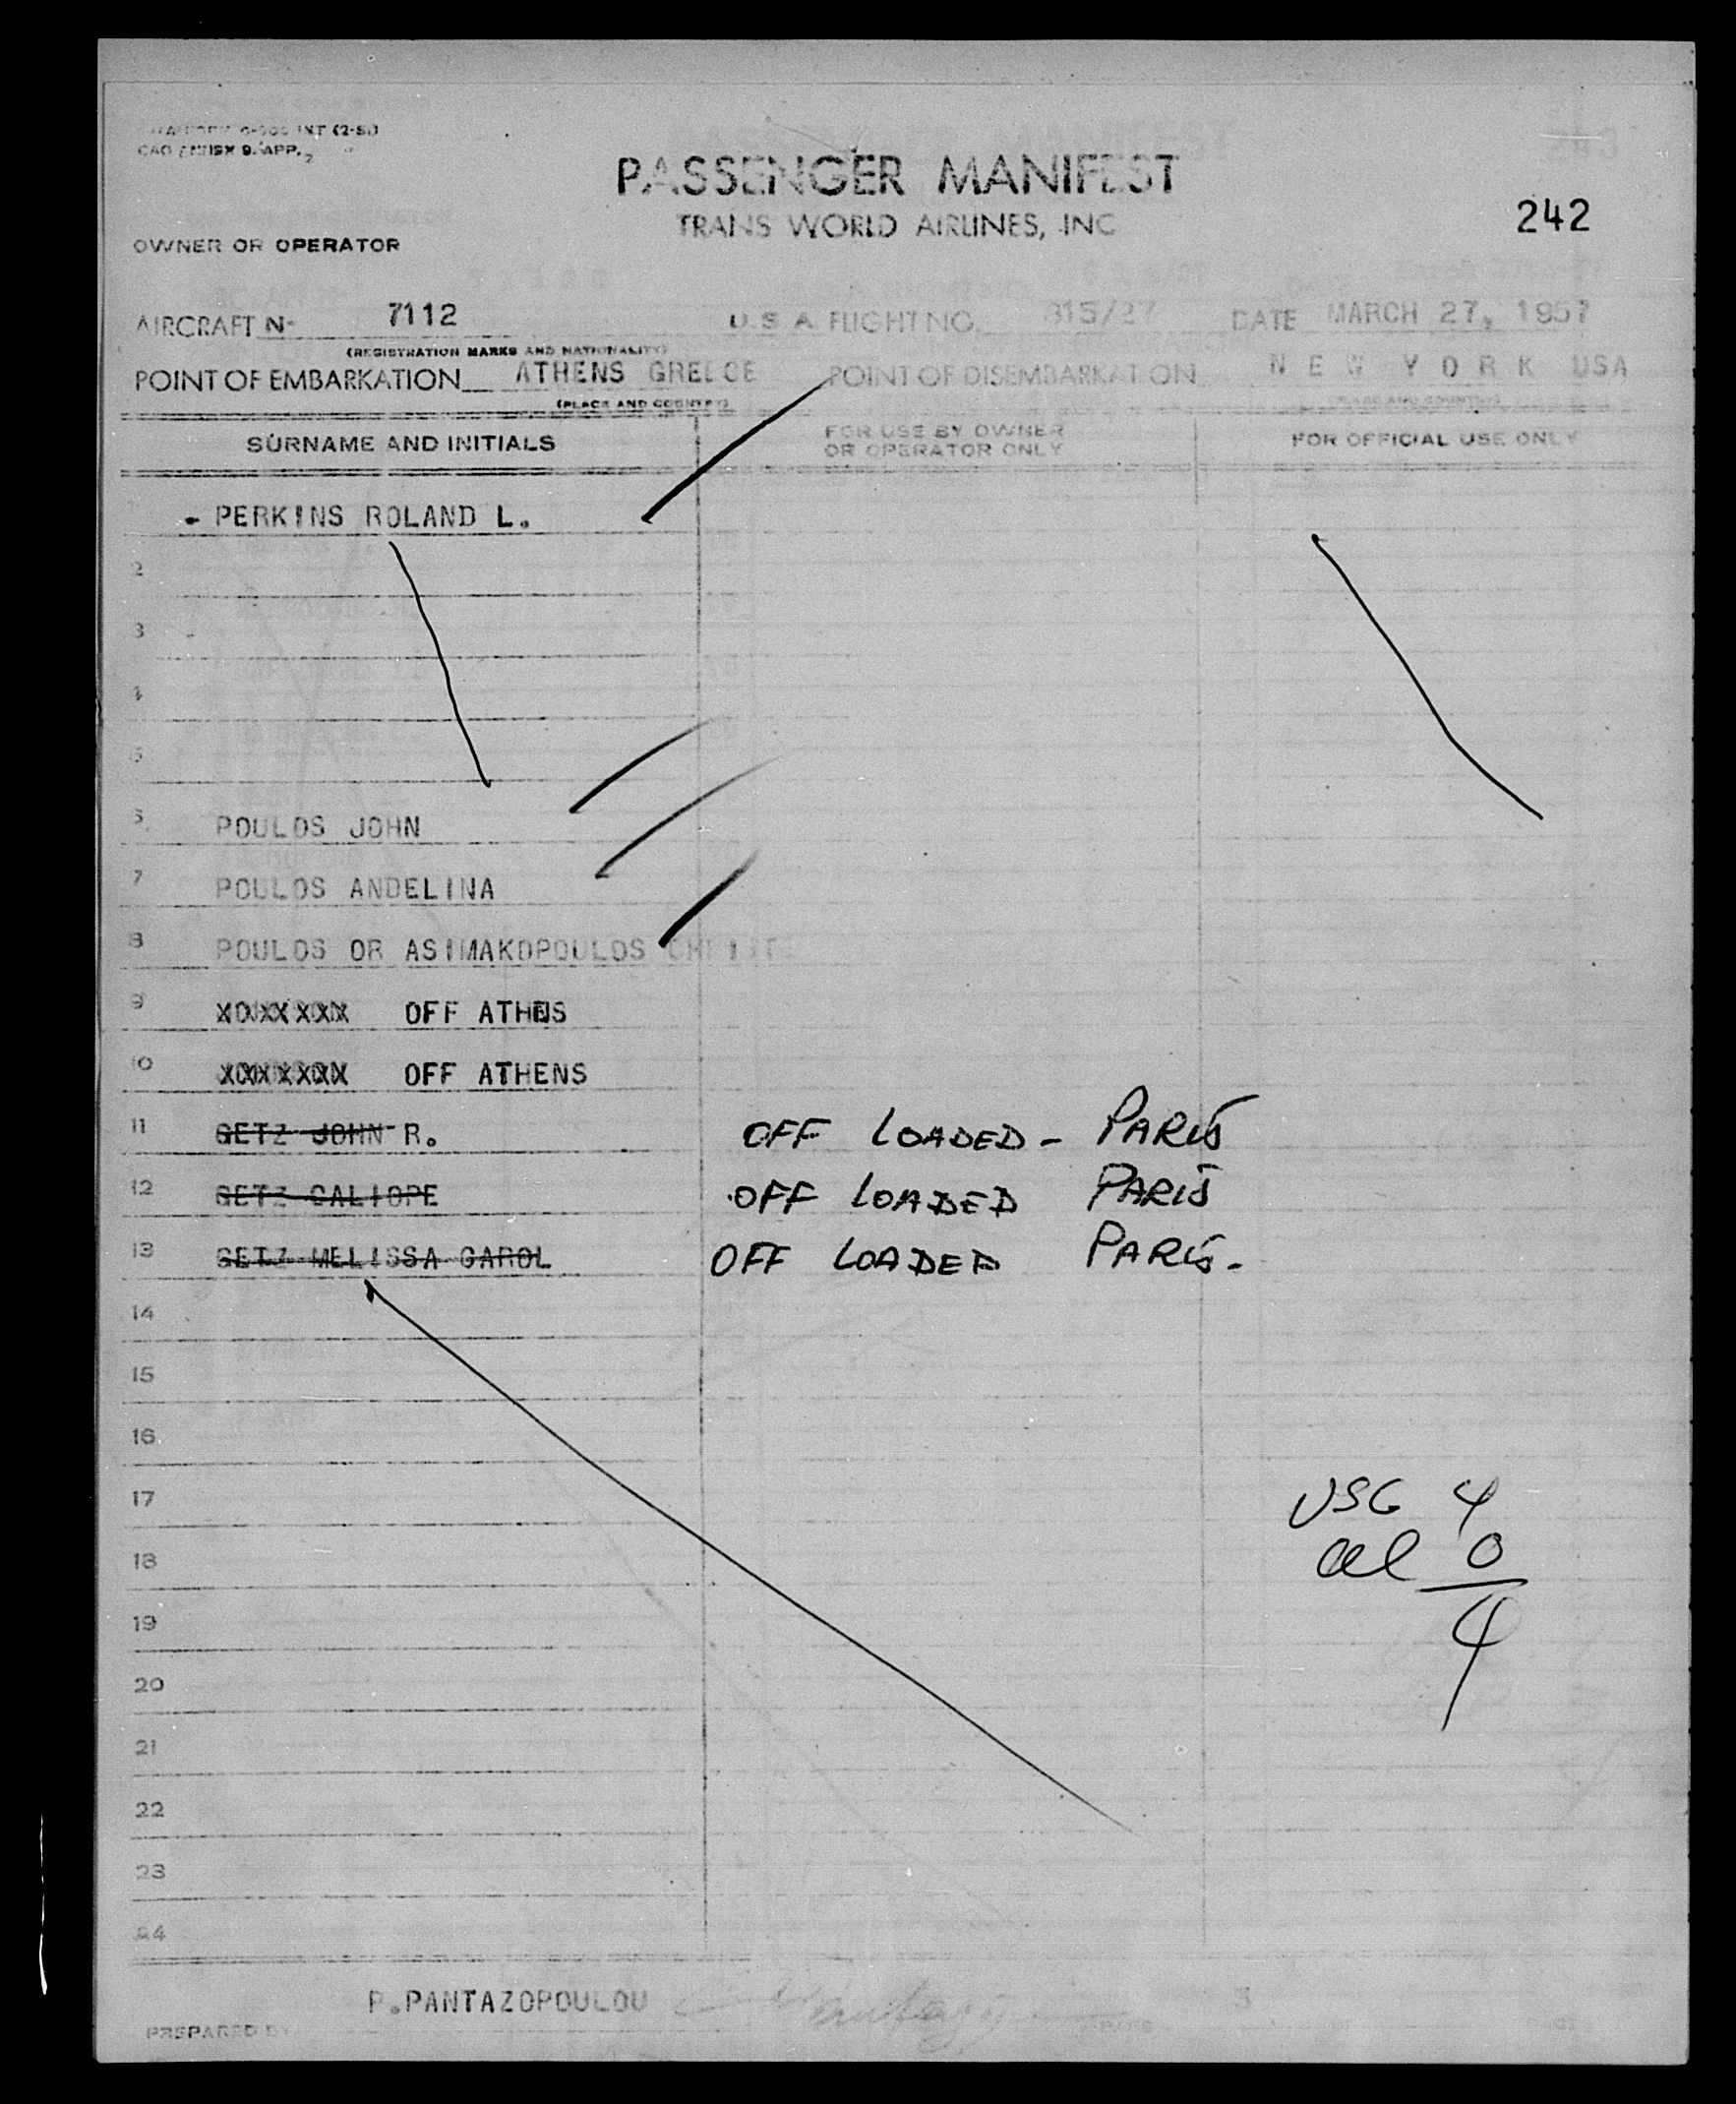 INT (2-5.)
CAO ANNEX 9. APP. 2
PASSENGER MANIFEST
TRANS WORLD AIRLINES, INC
242
OWNER OR OPERATOR
AIRCRAFT N- 7112 U.S.A. FLIGHT NO. 815/27 DATE MARCH 27, 1957
(REGISTRATION MARKS AND NATIONALITY)
POINT OF EMBARKATION ATHENS GREECE POINT OF DISEMBARKATION NEW YORK USA
(PLACE AND COUNTRY) (PLACE AND COUNTRY)
SURNAME AND INITIALS FOR USE BY OWNER OR OPERATOR ONLY FOR OFFICIAL USE ONLY
- PERKINS ROLAND L.
2
3
4
5
6 POULOS JOHN
7 POULOS ANDELINA
8 POULOS OR ASIMAKOPOULOS CHRIST
9 OFF ATHENS
10 OFF ATHENS
11 GETZ JOHN R. OFF LOADED - PARIS
12 GETZ CALIOPE OFF LOADED PARIS
13 GETZ MELISSA CAROL OFF LOADED PARIS.
14
15
16
17 USC 4
18 al 0
19 4
20
21
22
23
24
P.PANTAZOPOULOU 3
PREPARED BY